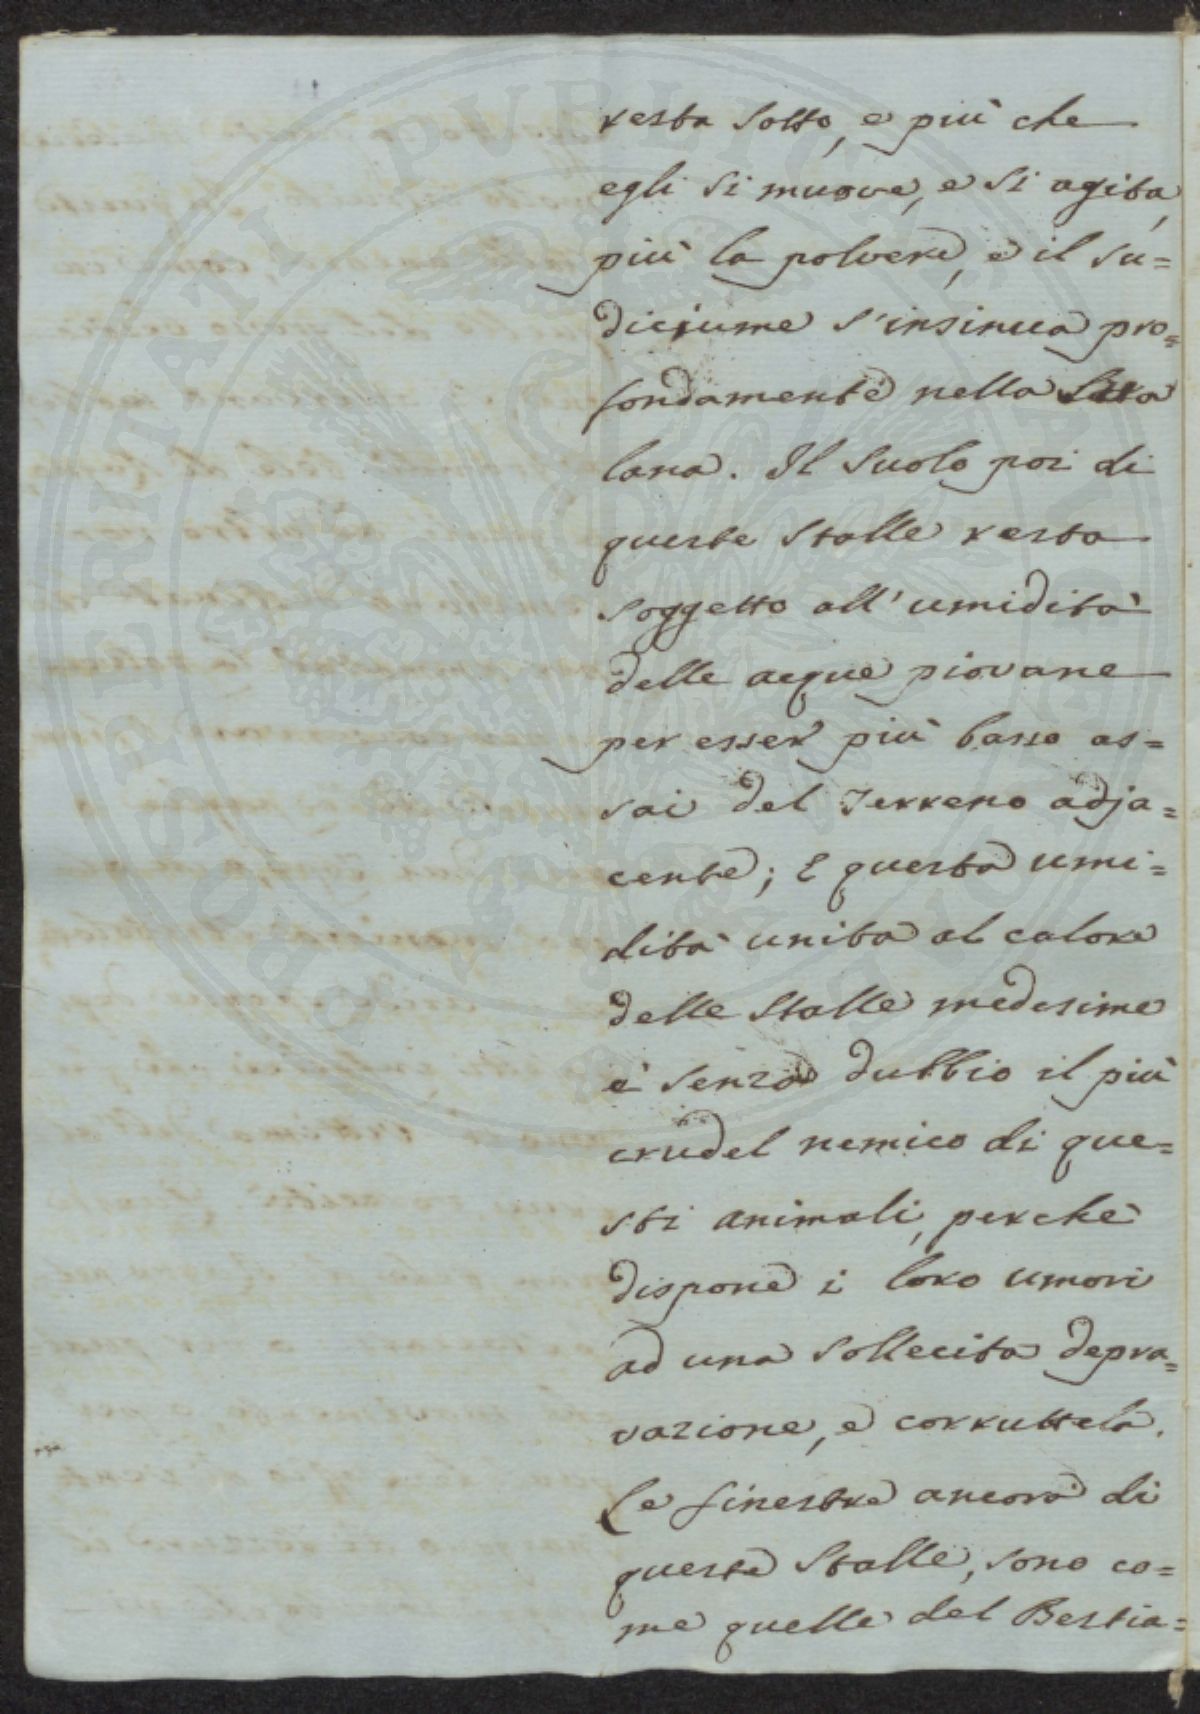 resta sotto, e più che
egli si muove, e si agita,
più la polvere, e il su=
diciume s'insinua pro=
fondamente nella Sua
lana. Il Suolo poi di
queste Stalle resta
soggetto all'umidità
delle acque piovane
per esser più basso as=
sai del Terreno adja=
cente; E questa umi=
dità unita al calore
delle Stalle medesime
è senza dubbio il più
crudel nemico di que=
sti animali, perchè
dispone i loro umori
ad una sollecita depra=
vazione, e corruttela.
Le finestre ancora di
queste Stalle, sono co=
me quelle del Bestia=
PROSPERITATI PVBLICAE AVGENDAE